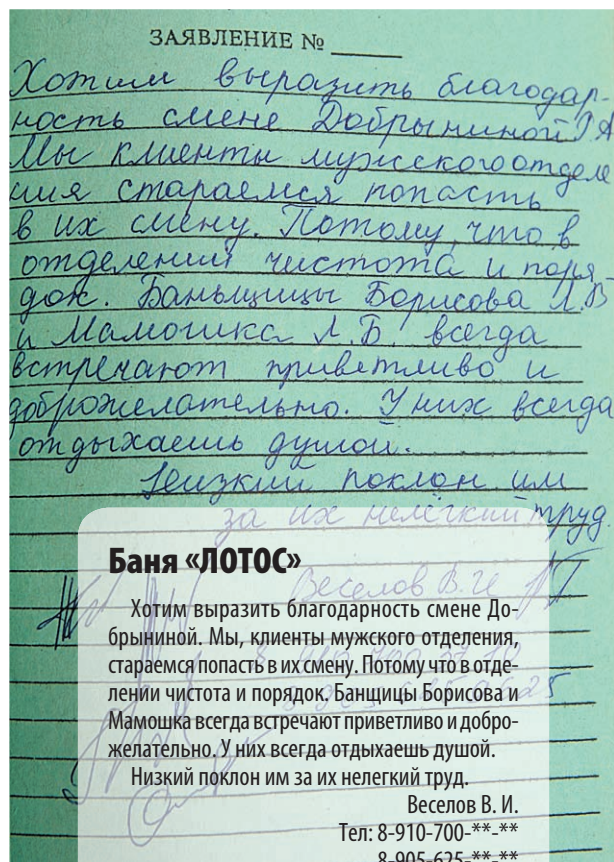 ЗАЯВЛЕНИЕ №
Хотим выразить благодар-
ность смене Добрыниной
Мы клиенты мужского отделе
ния стараемся попасть
в их смену. Потому, что в
отделении чистота и поря-
док. Баньщицы Борисова Л.В
и Мамошика Л.Б. всегда
встречают приветливо и
доброжелательно. У них всегда
отдыхаешь душой.
Низкий поклон им
за их нелёгкий труд
Веселов В. И
Баня «ЛОТОС»
Хотим выразить благодарность смене До-
брыниной. Мы, клиенты мужского отделения,
стараемся попасть в их смену. Потому что в отде-
лении чистота и порядок. Банщицы Борисова и
Мамошка всегда встречают приветливо и добро-
желательно. У них всегда отдыхаешь душой.
Низкий поклон им за их нелегкий труд.
Веселов В. И.
Тел: 8-910-700-**-**
8-905-625-**-**